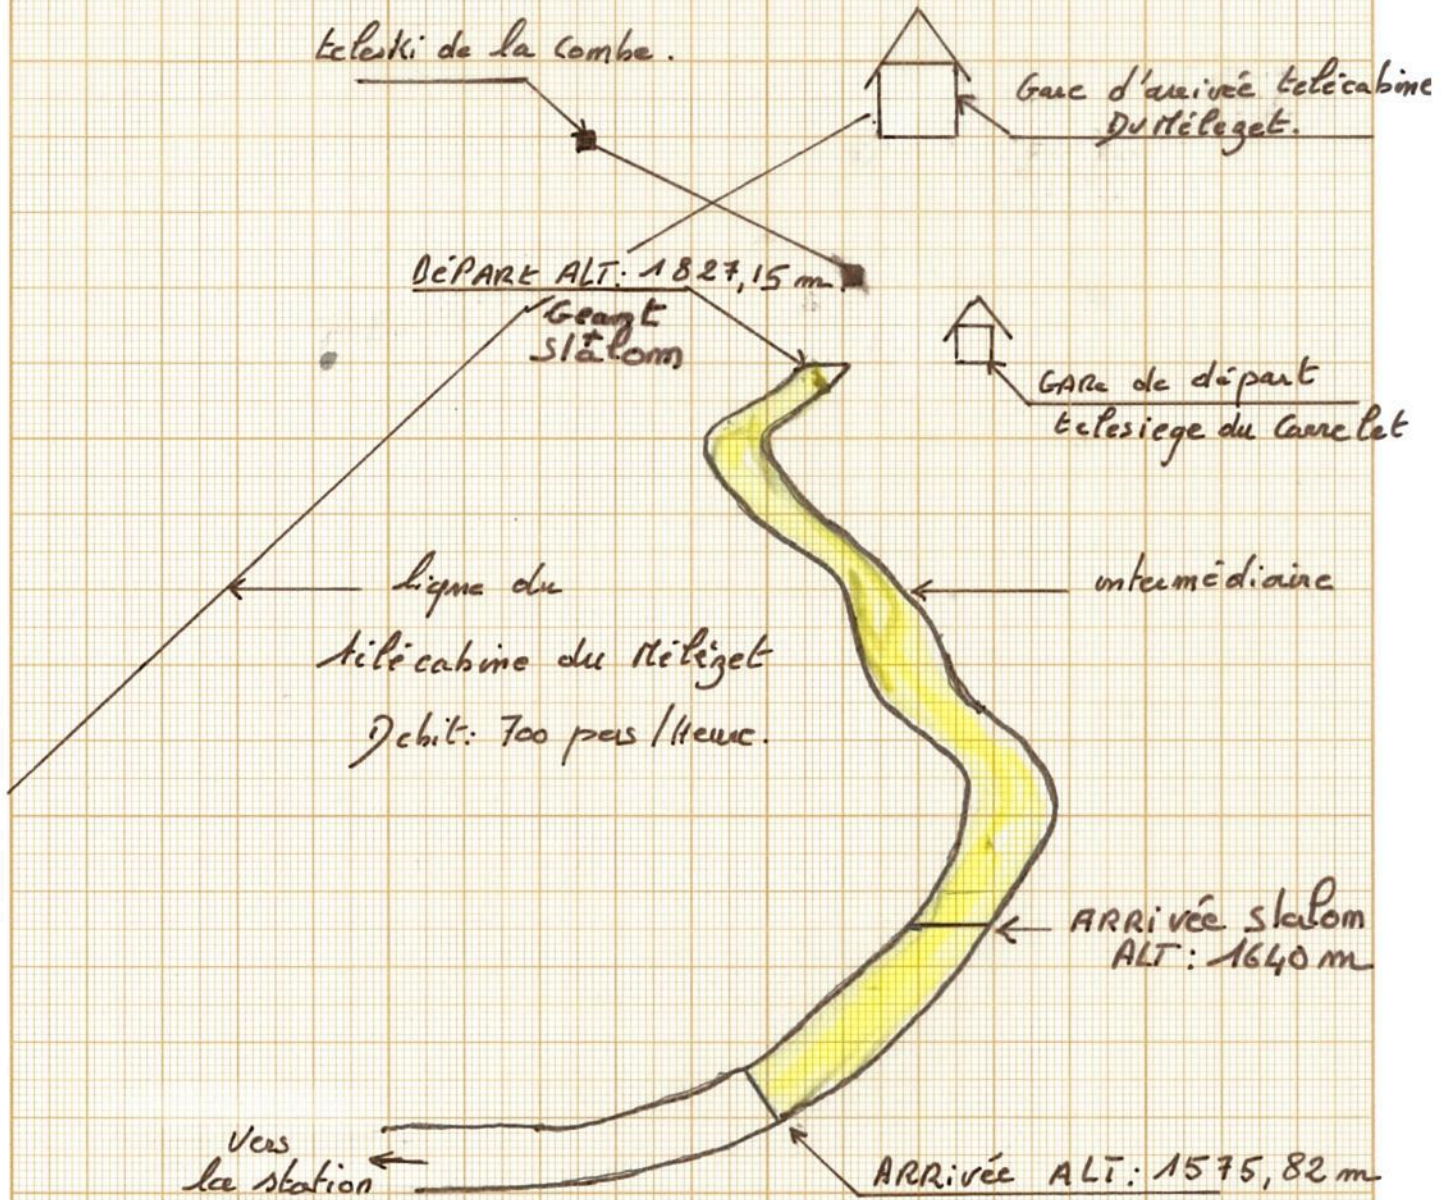 teleski de la Combe.
Gare d'arrivée telécabine
Du Méleget.
DéPARt ALT: 1827,15 m
Geant
+
slalom
GARe de départ
telesiege du Carrelet
ligne du
intermédiaire
télécabine du Mélézet
Debit: 700 pers/Heure.
ARRivée slalom
ALT: 1640 m
Vers
la station
ARRivée ALT: 1575,82 m